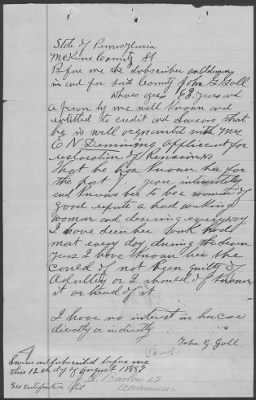 State of Pennsylvania
McKean County SS
Before me the Subscriber an Alderman
in and for said County John G Goll
whose age is 63 years and
a person by me well known and
entitled to credit and swears that
he is well acquainted with Mrs
E N Demming applicant for
restoration of Pension
That he has known her for
the past year intimately
and knows her to be a woman of
good repute a hard working
woman and deserving every way
I have seen her work hard
most every day during the
years I have known her she
could of not been guilty of
Adultery or I should of known
it or heard of it
I have no interest in her case
directly or indirectly
John G Goll
Sworn and subscribed before me
this 12th day of August 1889
Alderman